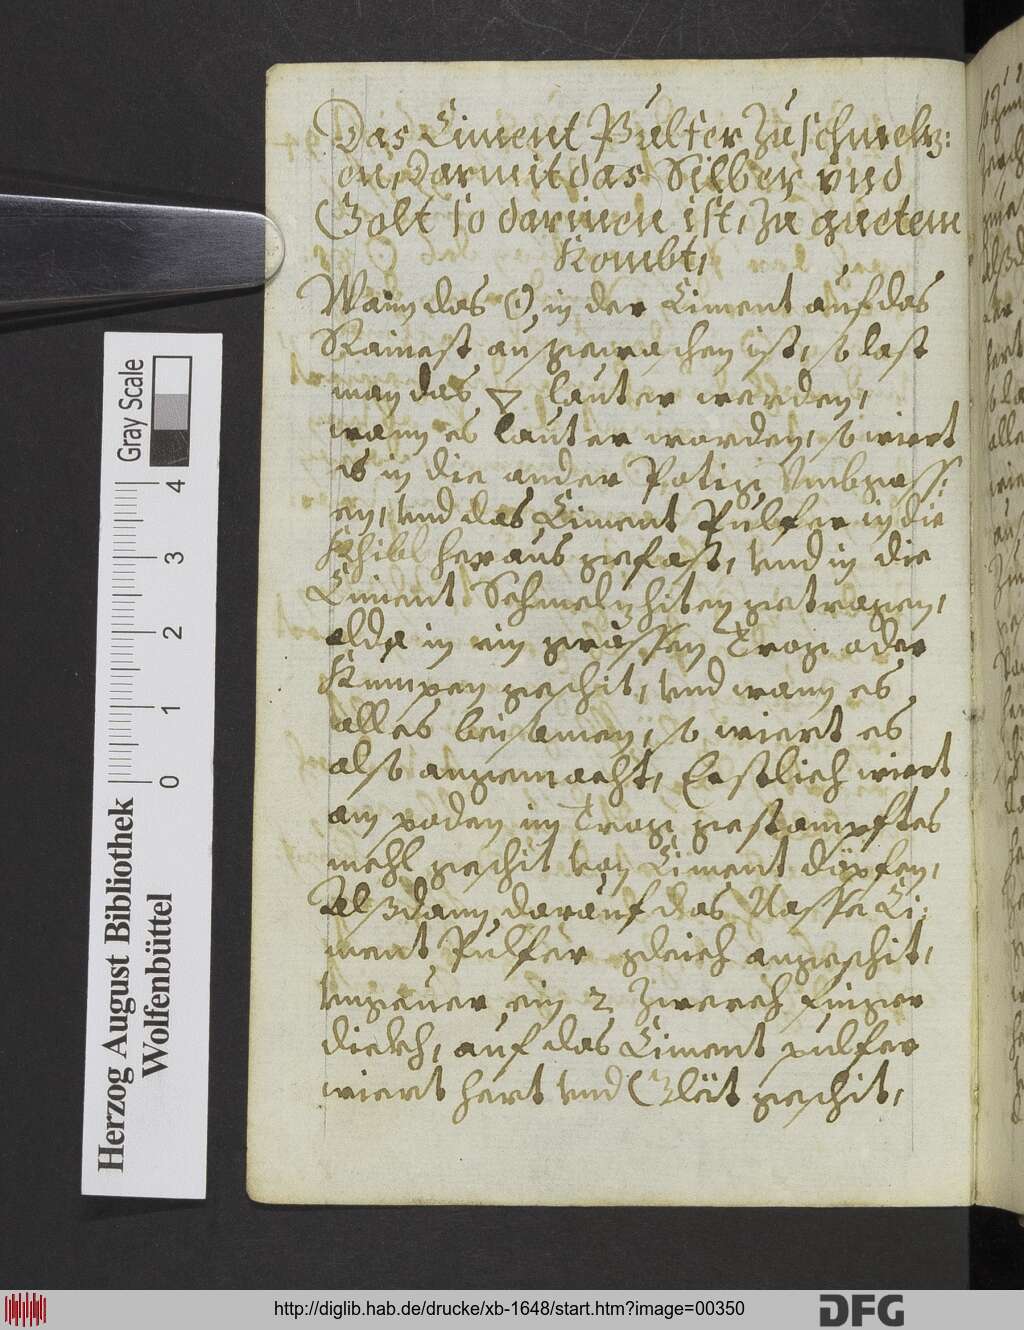 Das Ciment Pulfer Zu schmeltz:
en, Darmit das Silber vnd
Golt so darinen ist, zu guetem
Kombt,
Wann das ☉ in der Ciment auf das
Rainest aus gewaschen ist, so last
man das 🜄 lauter werden,
wann es lauter worden, so wiert
es in die ander Potig Vmbgoss:
en, Vnd das Ciment Pulfer in die
heraus gefast, Vnd in die
Ciment Schmeltzhiten getragen,
alda in ein grossen Trog oder
Kumpen geschit, Vnd wann es
alles beisamen, so wiert es
also angemacht, Erstlich wiert
am poden im Trog gestampftes
mehl geschit von Ciment döpfen,
Alßdann darauf das Nasse Ci:
ment Pulfer gleich angeschit,
Vngeuer ein 2 Zwerch finger
dickh, auf das Ciment pulfer
wiert hert Vnd Glöt geschit,
Gray Scale
0 1 2 3 4
Herzog August Bibliothek
Wolfenbüttel
http://diglib.hab.de/drucke/xb-1648/start.htm?image=00350
DFG